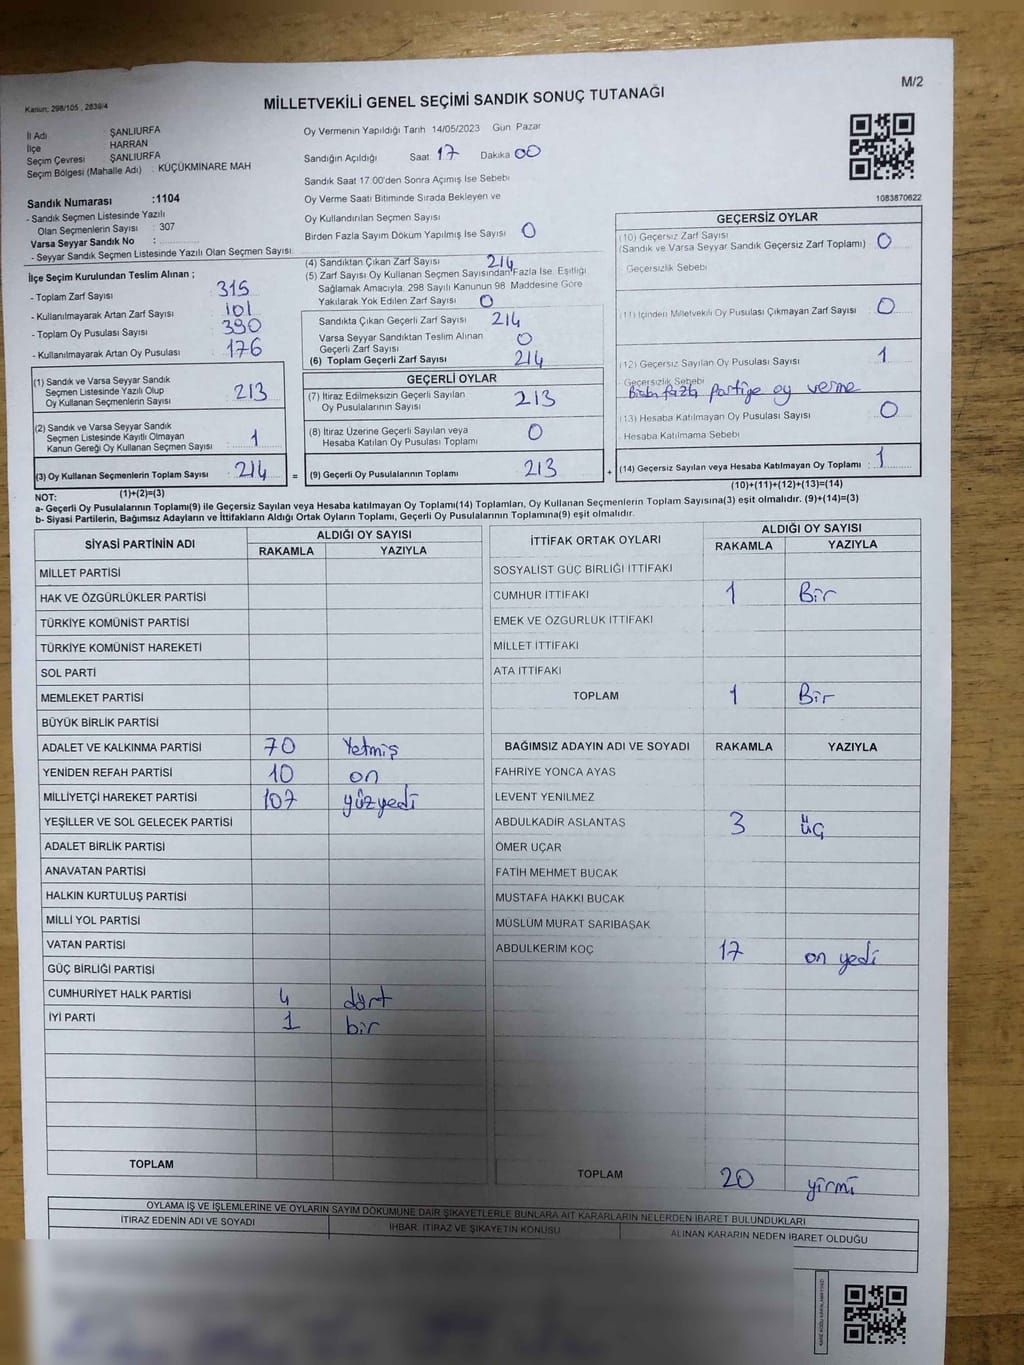 M/2
Kanun: 298/105 , 2839/4
MİLLETVEKİLİ GENEL SEÇİMİ SANDIK SONUÇ TUTANAĞI
İl Adı : ŞANLIURFA
İlçe : HARRAN
Seçim Çevresi : ŞANLIURFA
Seçim Bölgesi (Mahalle Adı) : KÜÇÜKMİNARE MAH
Sandık Numarası :1104
- Sandık Seçmen Listesinde Yazılı
Olan Seçmenlerin Sayısı : 307
Varsa Seyyar Sandık No :
- Seyyar Sandık Seçmen Listesinde Yazılı Olan Seçmen Sayısı
Oy Vermenin Yapıldığı Tarih 14/05/2023 Gün Pazar
Sandığın Açıldığı Saat 17 Dakika 00
Sandık Saat 17:00'den Sonra Açımış İse Sebebi
Oy Verme Saati Bitiminde Sırada Bekleyen ve
Oy Kullandırılan Seçmen Sayısı
Birden Fazla Sayım Döküm Yapılmış İse Sayısı 0
1083870622
İlçe Seçim Kurulundan Teslim Alınan ;
- Toplam Zarf Sayısı : 315
- Kullanılmayarak Artan Zarf Sayısı : 101
- Toplam Oy Pusulası Sayısı : 390
- Kullanılmayarak Artan Oy Pusulası : 176
(1) Sandık ve Varsa Seyyar Sandık
Seçmen Listesinde Yazılı Olup
Oy Kullanan Seçmenlerin Sayısı : 213
(2) Sandık ve Varsa Seyyar Sandık
Seçmen Listesinde Kayıtlı Olmayan
Kanun Gereği Oy Kullanan Seçmen Sayısı : 1
(3) Oy Kullanan Seçmenlerin Toplam Sayısı : 214 =
(1)+(2)=(3)
(4) Sandıktan Çıkan Zarf Sayısı 214
(5) Zarf Sayısı Oy Kullanan Seçmen Sayısından Fazla İse, Eşitliği
Sağlamak Amacıyla, 298 Sayılı Kanunun 98. Maddesine Göre
Yakılarak Yok Edilen Zarf Sayısı : 0
Sandıkta Çıkan Geçerli Zarf Sayısı 214
Varsa Seyyar Sandıktan Teslim Alınan
Geçerli Zarf Sayısı 0
(6) Toplam Geçerli Zarf Sayısı 214
GEÇERLİ OYLAR
(7) İtiraz Edilmeksizin Geçerli Sayılan
Oy Pusulalarının Sayısı : 213
(8) İtiraz Üzerine Geçerli Sayılan veya
Hesaba Katılan Oy Pusulası Toplamı : 0
(9) Geçerli Oy Pusulalarının Toplamı : 213 +
GEÇERSİZ OYLAR
(10) Geçersiz Zarf Sayısı
(Sandık ve Varsa Seyyar Sandık Geçersiz Zarf Toplamı) : 0
Geçersizlik Sebebi
(11) İçinden Milletvekili Oy Pusulası Çıkmayan Zarf Sayısı : 0
(12) Geçersiz Sayılan Oy Pusulası Sayısı : 1
Geçersizlik Sebebi
fazla partiye oy verme
(13) Hesaba Katılmayan Oy Pusulası Sayısı : 0
Hesaba Katılmama Sebebi
(14) Geçersiz Sayılan veya Hesaba Katılmayan Oy Toplamı : 1
(10)+(11)+(12)+(13)=(14)
NOT:
a- Geçerli Oy Pusulalarının Toplamı(9) ile Geçersiz Sayılan veya Hesaba katılmayan Oy Toplamı(14) Toplamları, Oy Kullanan Seçmenlerin Toplam Sayısına(3) eşit olmalıdır. (9)+(14)=(3)
b- Siyasi Partilerin, Bağımsız Adayların ve İttifakların Aldığı Ortak Oyların Toplamı, Geçerli Oy Pusulalarının Toplamına(9) eşit olmalıdır.
SİYASİ PARTİNİN ADI ALDIĞI OY SAYISI
RAKAMLA YAZIYLA
MİLLET PARTİSİ
HAK VE ÖZGÜRLÜKLER PARTİSİ
TÜRKİYE KOMÜNİST PARTİSİ
TÜRKİYE KOMÜNİST HAREKETİ
SOL PARTİ
MEMLEKET PARTİSİ
BÜYÜK BİRLİK PARTİSİ
ADALET VE KALKINMA PARTİSİ 70 Yetmiş
YENİDEN REFAH PARTİSİ 10 on
MİLLİYETÇİ HAREKET PARTİSİ 107 yüzyedi
YEŞİLLER VE SOL GELECEK PARTİSİ
ADALET BİRLİK PARTİSİ
ANAVATAN PARTİSİ
HALKIN KURTULUŞ PARTİSİ
MİLLİ YOL PARTİSİ
VATAN PARTİSİ
GÜÇ BİRLİĞİ PARTİSİ
CUMHURİYET HALK PARTİSİ 4 dört
İYİ PARTİ 1 bir
TOPLAM
İTTİFAK ORTAK OYLARI ALDIĞI OY SAYISI
RAKAMLA YAZIYLA
SOSYALİST GÜÇ BİRLİĞİ İTTİFAKI
CUMHUR İTTİFAKI 1 Bir
EMEK VE ÖZGÜRLÜK İTTİFAKI
MİLLET İTTİFAKI
ATA İTTİFAKI
TOPLAM 1 Bir
BAĞIMSIZ ADAYIN ADI VE SOYADI RAKAMLA YAZIYLA
FAHRİYE YONCA AYAS
LEVENT YENİLMEZ
ABDULKADİR ASLANTAŞ 3 üç
ÖMER UÇAR
FATİH MEHMET BUCAK
MUSTAFA HAKKI BUCAK
MÜSLÜM MURAT SARIBAŞAK
ABDULKERİM KOÇ 17 on yedi
TOPLAM 20 yirmi
OYLAMA İŞ VE İŞLEMLERİNE VE OYLARIN SAYIM DÖKÜMÜNE DAİR ŞİKAYETLERLE BUNLARA AİT KARARLARIN NELERDEN İBARET BULUNDUKLARI
İTİRAZ EDENİN ADI VE SOYADI
İHBAR, İTİRAZ VE ŞİKAYETİN KONUSU
ALINAN KARARIN NEDEN İBARET OLDUĞU